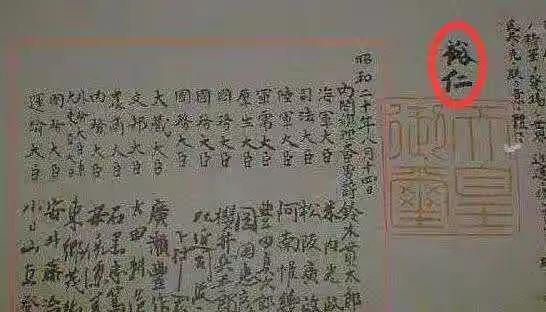 裕仁
天皇御璽
昭和二十年八月十四日
内閣總理大臣男爵 鈴木貫太郎
海軍大臣 米内光政
司法大臣 松阪廣政
陸軍大臣 阿南惟幾
軍需大臣 豊田貞次郎
厚生大臣 岡田忠
國務大臣 櫻井兵五郎
國務大臣 左近司政
國務大臣
大藏大臣 廣瀬豊作
文部大臣 太田耕造
農商大臣 石黒忠篤
内務大臣 安倍源
外務大臣 大東亞大臣 東郷茂徳
國務大臣 安井藤治
運輸大臣 小日山直登